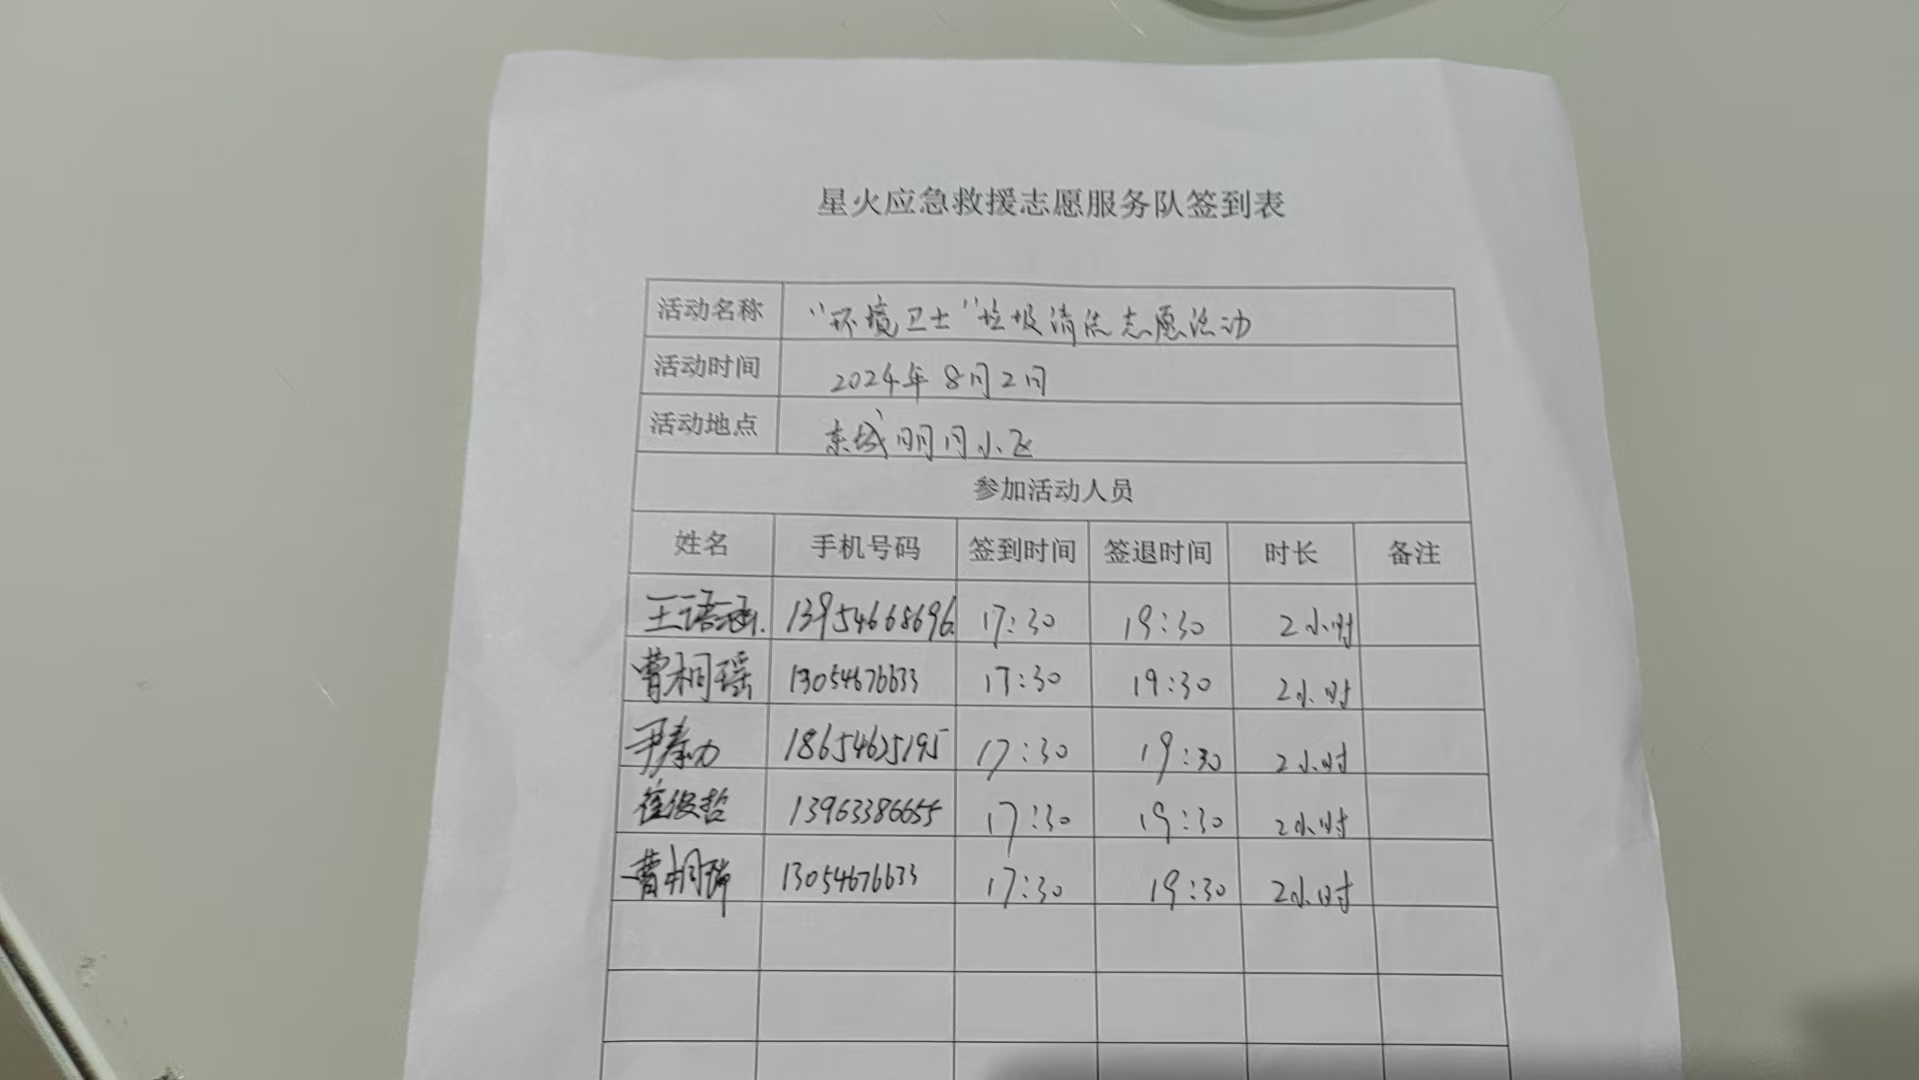 星火应急救援志愿服务队签到表
活动名称 “环境卫士”垃圾清洁志愿活动
活动时间 2024年8月2日
活动地点 东城明月小区
参加活动人员
姓名 手机号码 签到时间 签退时间 时长 备注
王语涵 13954668696 17:30 19:30 2小时
曹桐瑶 13054676633 17:30 19:30 2小时
尹 18654625195 17:30 19:30 2小时
崔俊哲 13963386655 17:30 19:30 2小时
曹桐瑞 13054676633 17:30 19:30 2小时